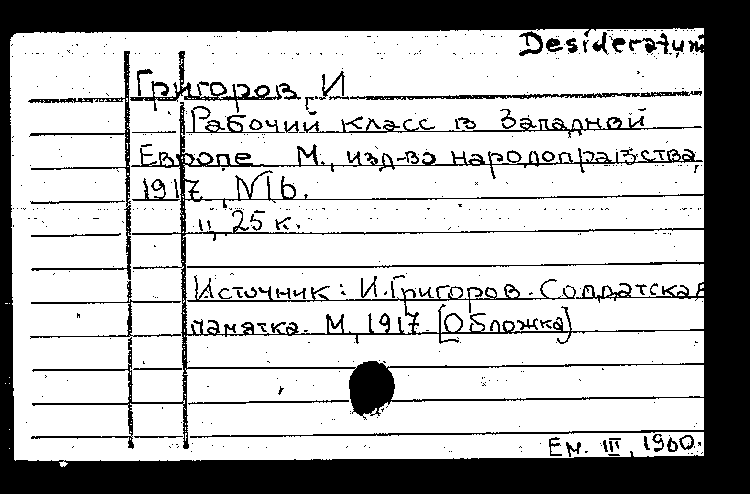 Desideratum
Григоров, И
Рабочий класс в Западной
Европе. М., изд-во народоправства,
1917, N16.
ц. 25 к.
Источник: И. Григоров. Солдатская
памятка. М., 1917. [Обложка]
Ем. III, 1960.